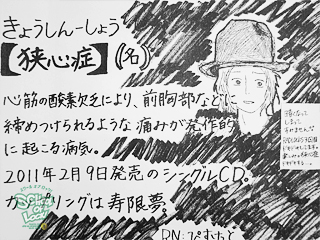 きょうしんーしょう
【狭心症】(名)
心筋の酸素欠乏により、前胸部などに
締めつけられるような痛みが発作的
に起こる病気。
2011年2月9日発売のシングルCD。
カップリングは寿限夢。
RN:ぴむたと